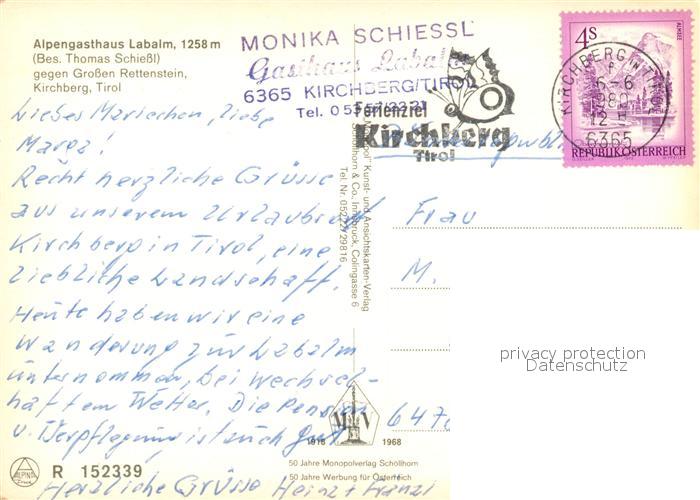 Alpengasthaus Labalm, 1258 m
(Bes. Thomas Schießl)
gegen Großen Rettenstein,
Kirchberg, Tirol
MONIKA SCHIESSL
Gasthaus Labalm
6365 KIRCHBERG/TIROL
Tel. 0 53 57/
Ferienziel
Kirchberg
Tirol
4S
ALMSEE
KIRCHBERG IN TIROL
6365
REPUBLIK ÖSTERREICH
Liebes Mariechen, liebe
Marga!
Recht herzliche Grüsse
aus unserem Urlaubsort
Kirchberg in Tirol, eine
liebliche Landschaft.
Heute haben wir eine
Wanderung zur Labalm
unternommen, bei wechsel-
haftem Wetter. Die Pension
u. Verpflegung ist auch gut.
Herzliche Grüsse Heinz + Franzi
Kunst- und Ansichtskarten-Verlag
Schöllhorn & Co., Innsbruck, Colingasse 6
Tel. Nr. 05222/29816
Frau
M.
647
privacy protection
Datenschutz
1918 1968
50 Jahre Monopolverlag Schöllhorn
50 Jahre Werbung für Österreich
ALPINA
Druck
R 152339